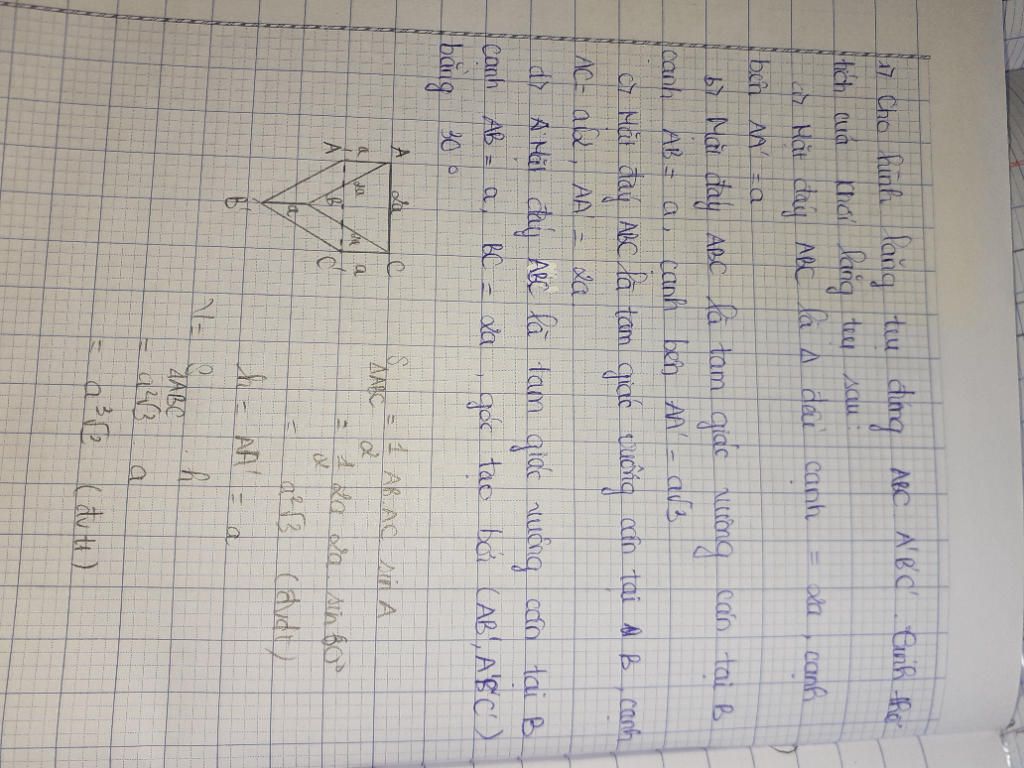 1) Cho hình lăng trụ đứng ABC A'B'C'. Tính thể
tích của khối lăng trụ sau:
a) Mặt đáy ABC là Δ đều cạnh = 2a, cạnh
bên AA' = a
b) Mặt đáy ABC là tam giác vuông cân tại B
cạnh AB = a, cạnh bên AA' = a√3
c) Mặt đáy ABC là tam giác vuông cân tại B, cạnh
AC = a√2, AA' = 2a
d) Mặt đáy ABC là tam giác vuông cân tại B
cạnh AB = a, BC = 2a, góc tạo bởi (AB', A'B'C')
bằng 30°
A 2a C
a 2a B 2a a
A' a C'
B'
SΔABC = 1/2 AB AC sin A
= 1/2 2a 2a sin 60°
= a²√3 (đvdt)
h = AA' = a
V = SΔABC . h
= a²√3 . a
= a³√3 (đvtt)